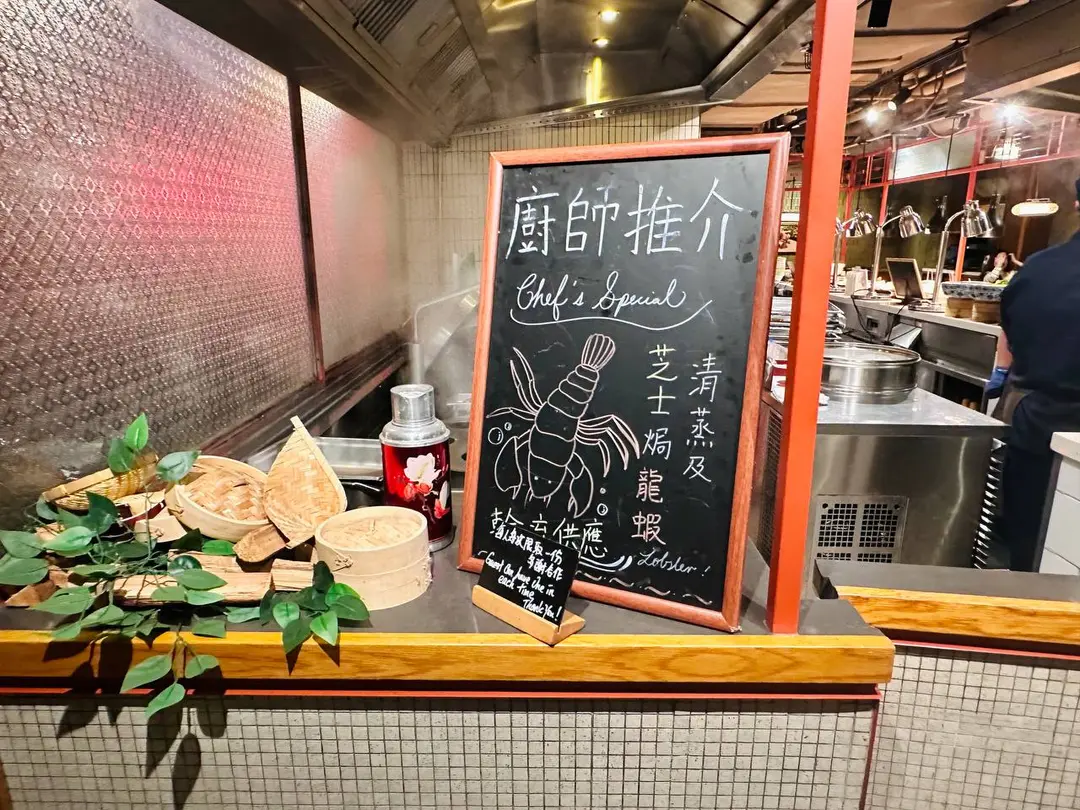 廚師推介
Chef's Special
清蒸及
芝士焗龍蝦
供應
Lobster!
每人每次限取一份
多謝合作
~Guest Can have One in
each time
Thank You!